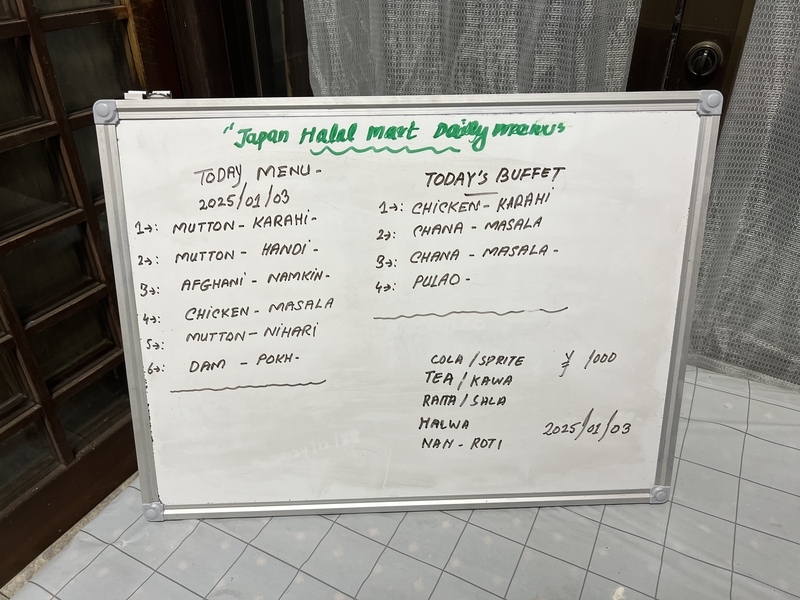 "Japan Halal mart Daily menus
TODAY MENU-
2025/01/03
1→: MUTTON - KARAHI-
2→: MUTTON - HANDI-
3→: AFGHANI - NAMKIN-
4→: CHICKEN - MASALA
5→: MUTTON - NIHARI
6→: DAM - POKH-
TODAY'S BUFFET
1→: CHICKEN - KARAHI
2→: CHANA - MASALA
3→: CHANA - MASALA -
4→: PULAO -
COLA / SPRITE ¥ 1000
TEA / KAWA
RAITA / SALA
HALWA
NAN - ROTI 2025/01/03